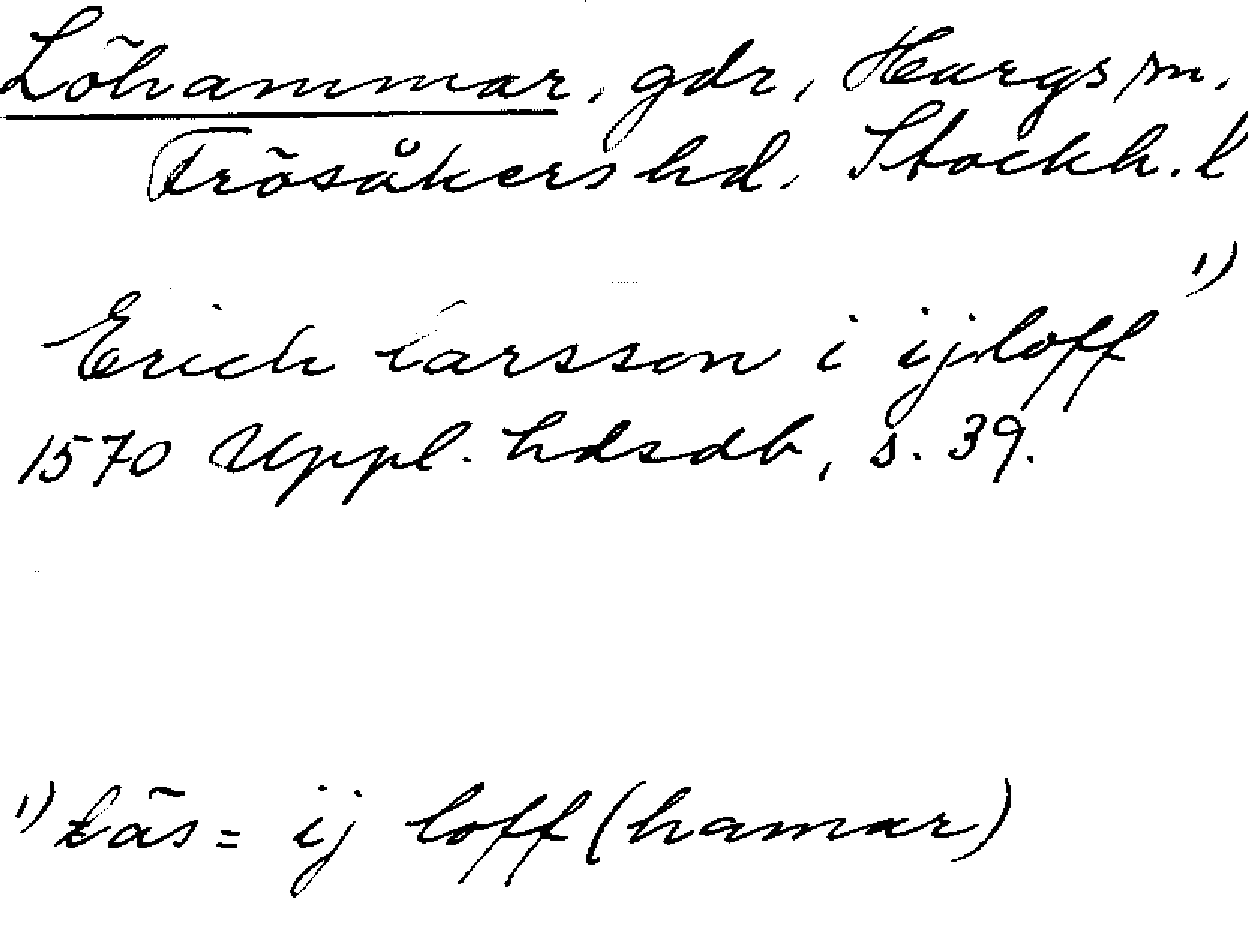 Löhammar, gdr, Hargs sn,
Frösåkers hd, Stockh. l
Erich larsson i ijloff 1)
1570 Uppl. hdsdb, s. 39.
1) Läs = ij loff (hamar)